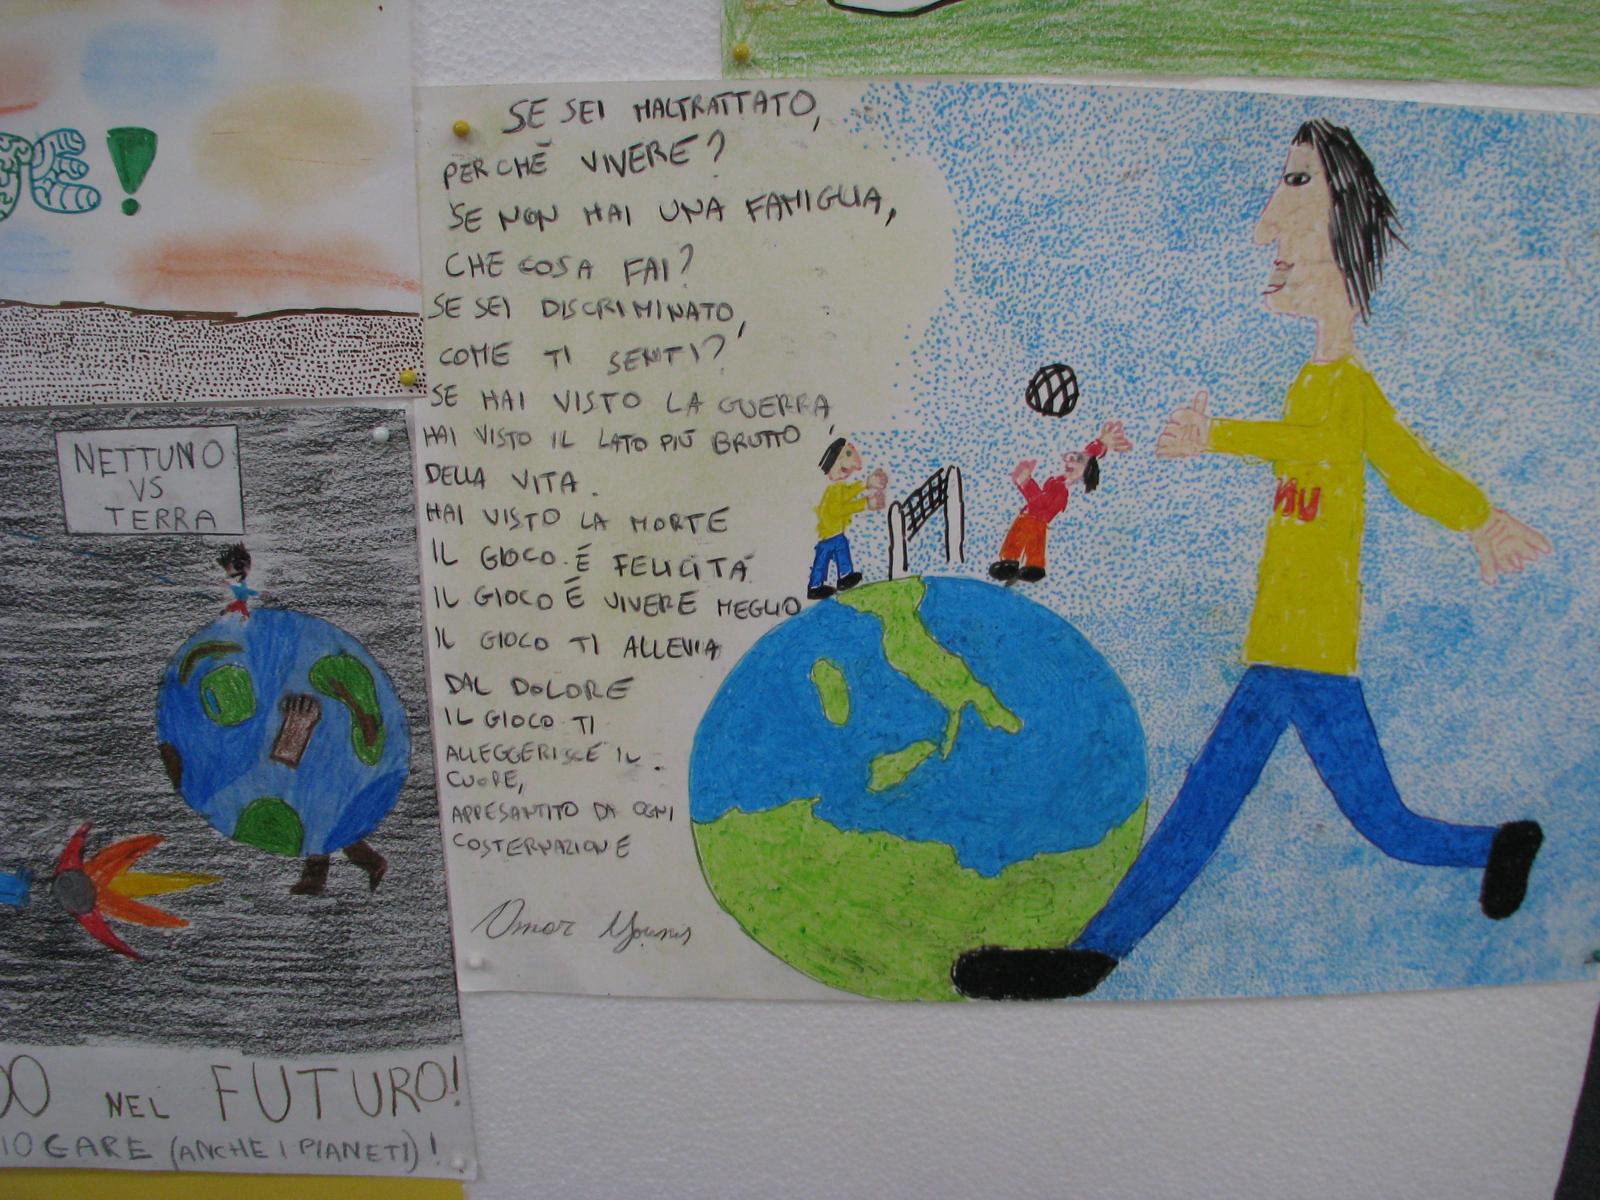 E!
SE SEI MALTRATTATO,
PERCHĒ VIVERE?
SE NON HAI UNA FAMIGLIA,
CHE COSA FAI?
SE SEI DISCRIMINATO,
COME TI SENTI?
SE HAI VISTO LA GUERRA,
HAI VISTO IL LATO PIÙ BRUTTO
DELLA VITA.
HAI VISTO LA MORTE
IL GIOCO É FELICITÁ
IL GIOCO É VIVERE MEGLIO
IL GIOCO TI ALLEVIA
DAL DOLORE
IL GIOCO TI
ALLEGGERISCE IL
CUORE,
APPESANTITO DA OGNI
COSTERNAZIONE
Omar Younis
NU
NETTUNO
VS
TERRA
DO NEL FUTURO!
IOGARE (ANCHE I PIANETI)!